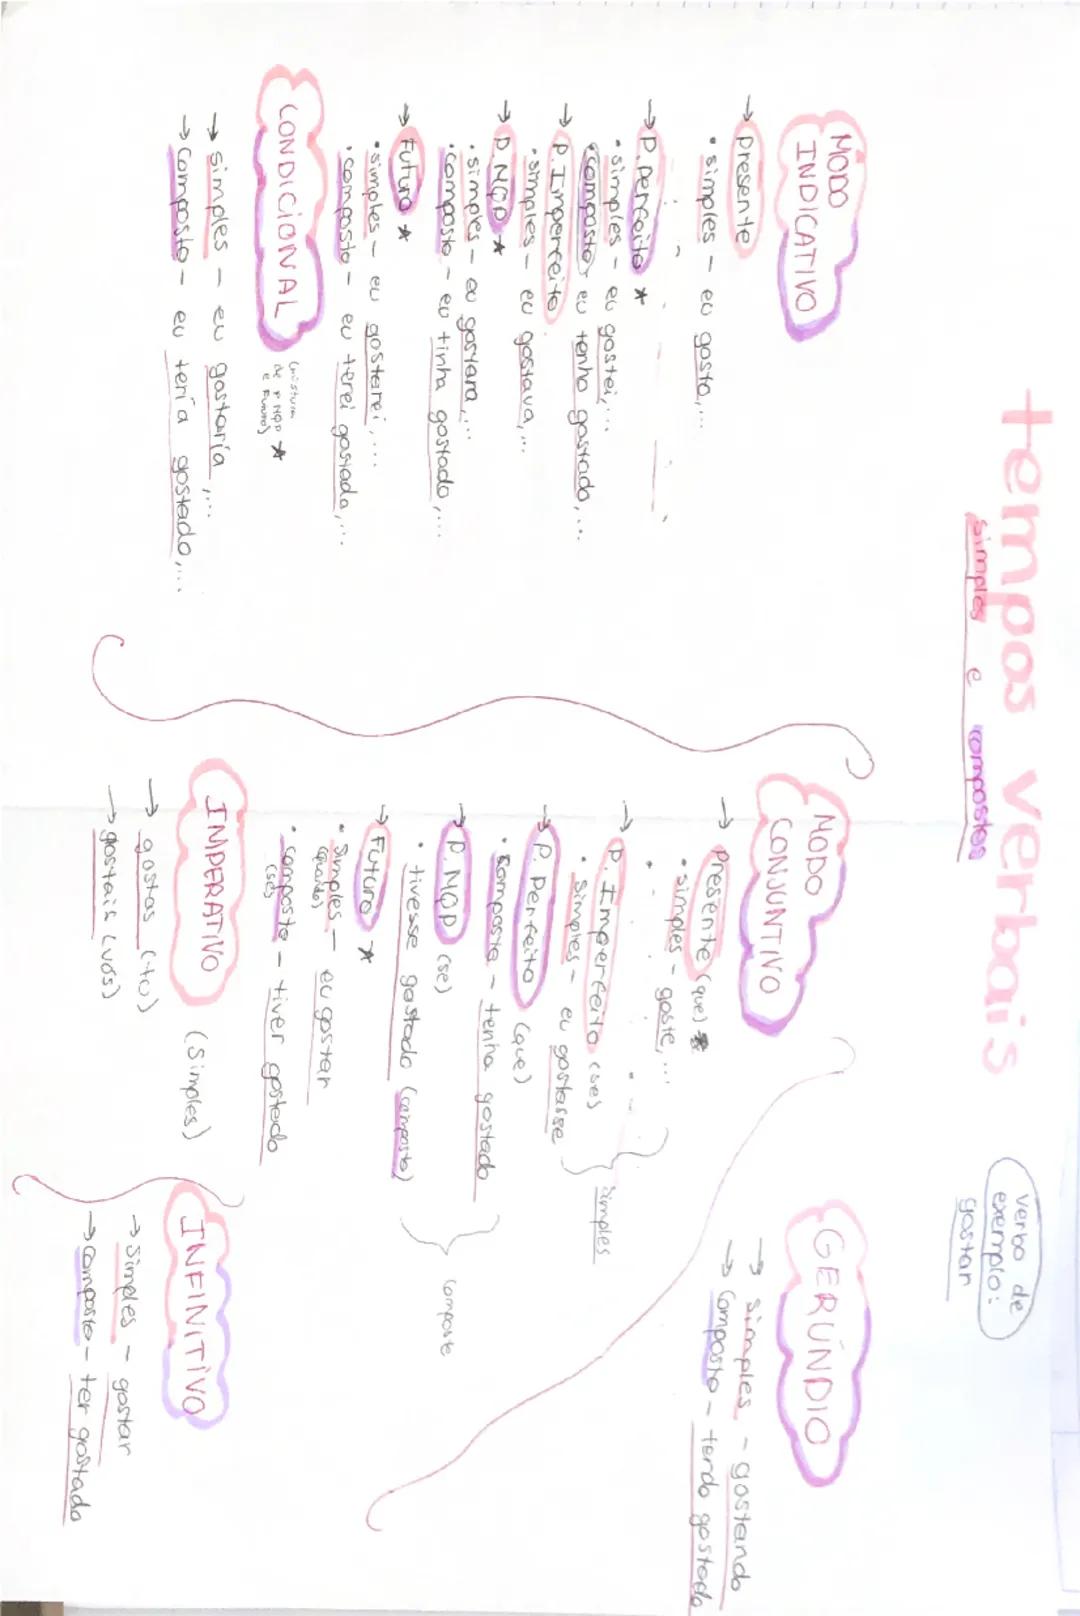 tempos verbais
simples e compostos
verbo de
exemplo:
gostar
MODO
INDICATIVO
→ presente
• simples - eu gosto,...
→ P. perfeito *
• simples - eu gostei,...
• composto eu tenho gostado,...
→ P. Imperfeito
• simples - eu gostava,...
→ P. MQP *
• simples - eu gostara,...
• composto - eu tinha gostado,...
→ Futuro *
• simples - eu gostarei,...
• composto - eu terei gostado,...
CONDICIONAL
(mistura
de PMQP *
e Futuro)
→ simples - eu gostaria,...
→ composto - eu teria gostado,...
MODO
CONJUNTIVO
→ presente (que) *
• simples - goste,...
→ P. Imperfeito (se)
• simples - eu gostasse
simples
→ P. Perfeito (que)
• composto - tenha gostado
→ P. MQP (se)
• tivesse gostado (composto)
composto
→ Futuro *
• simples - eu gostar
(quando)
• composto - tiver gostado
(se)
IMPERATIVO (simples)
→ gostas (tu)
→ gostais (vós)
GERÚNDIO
→ simples - gostando
→ composto - tendo gostado
INFINITIVO
→ simples - gostar
→ composto - ter gostado